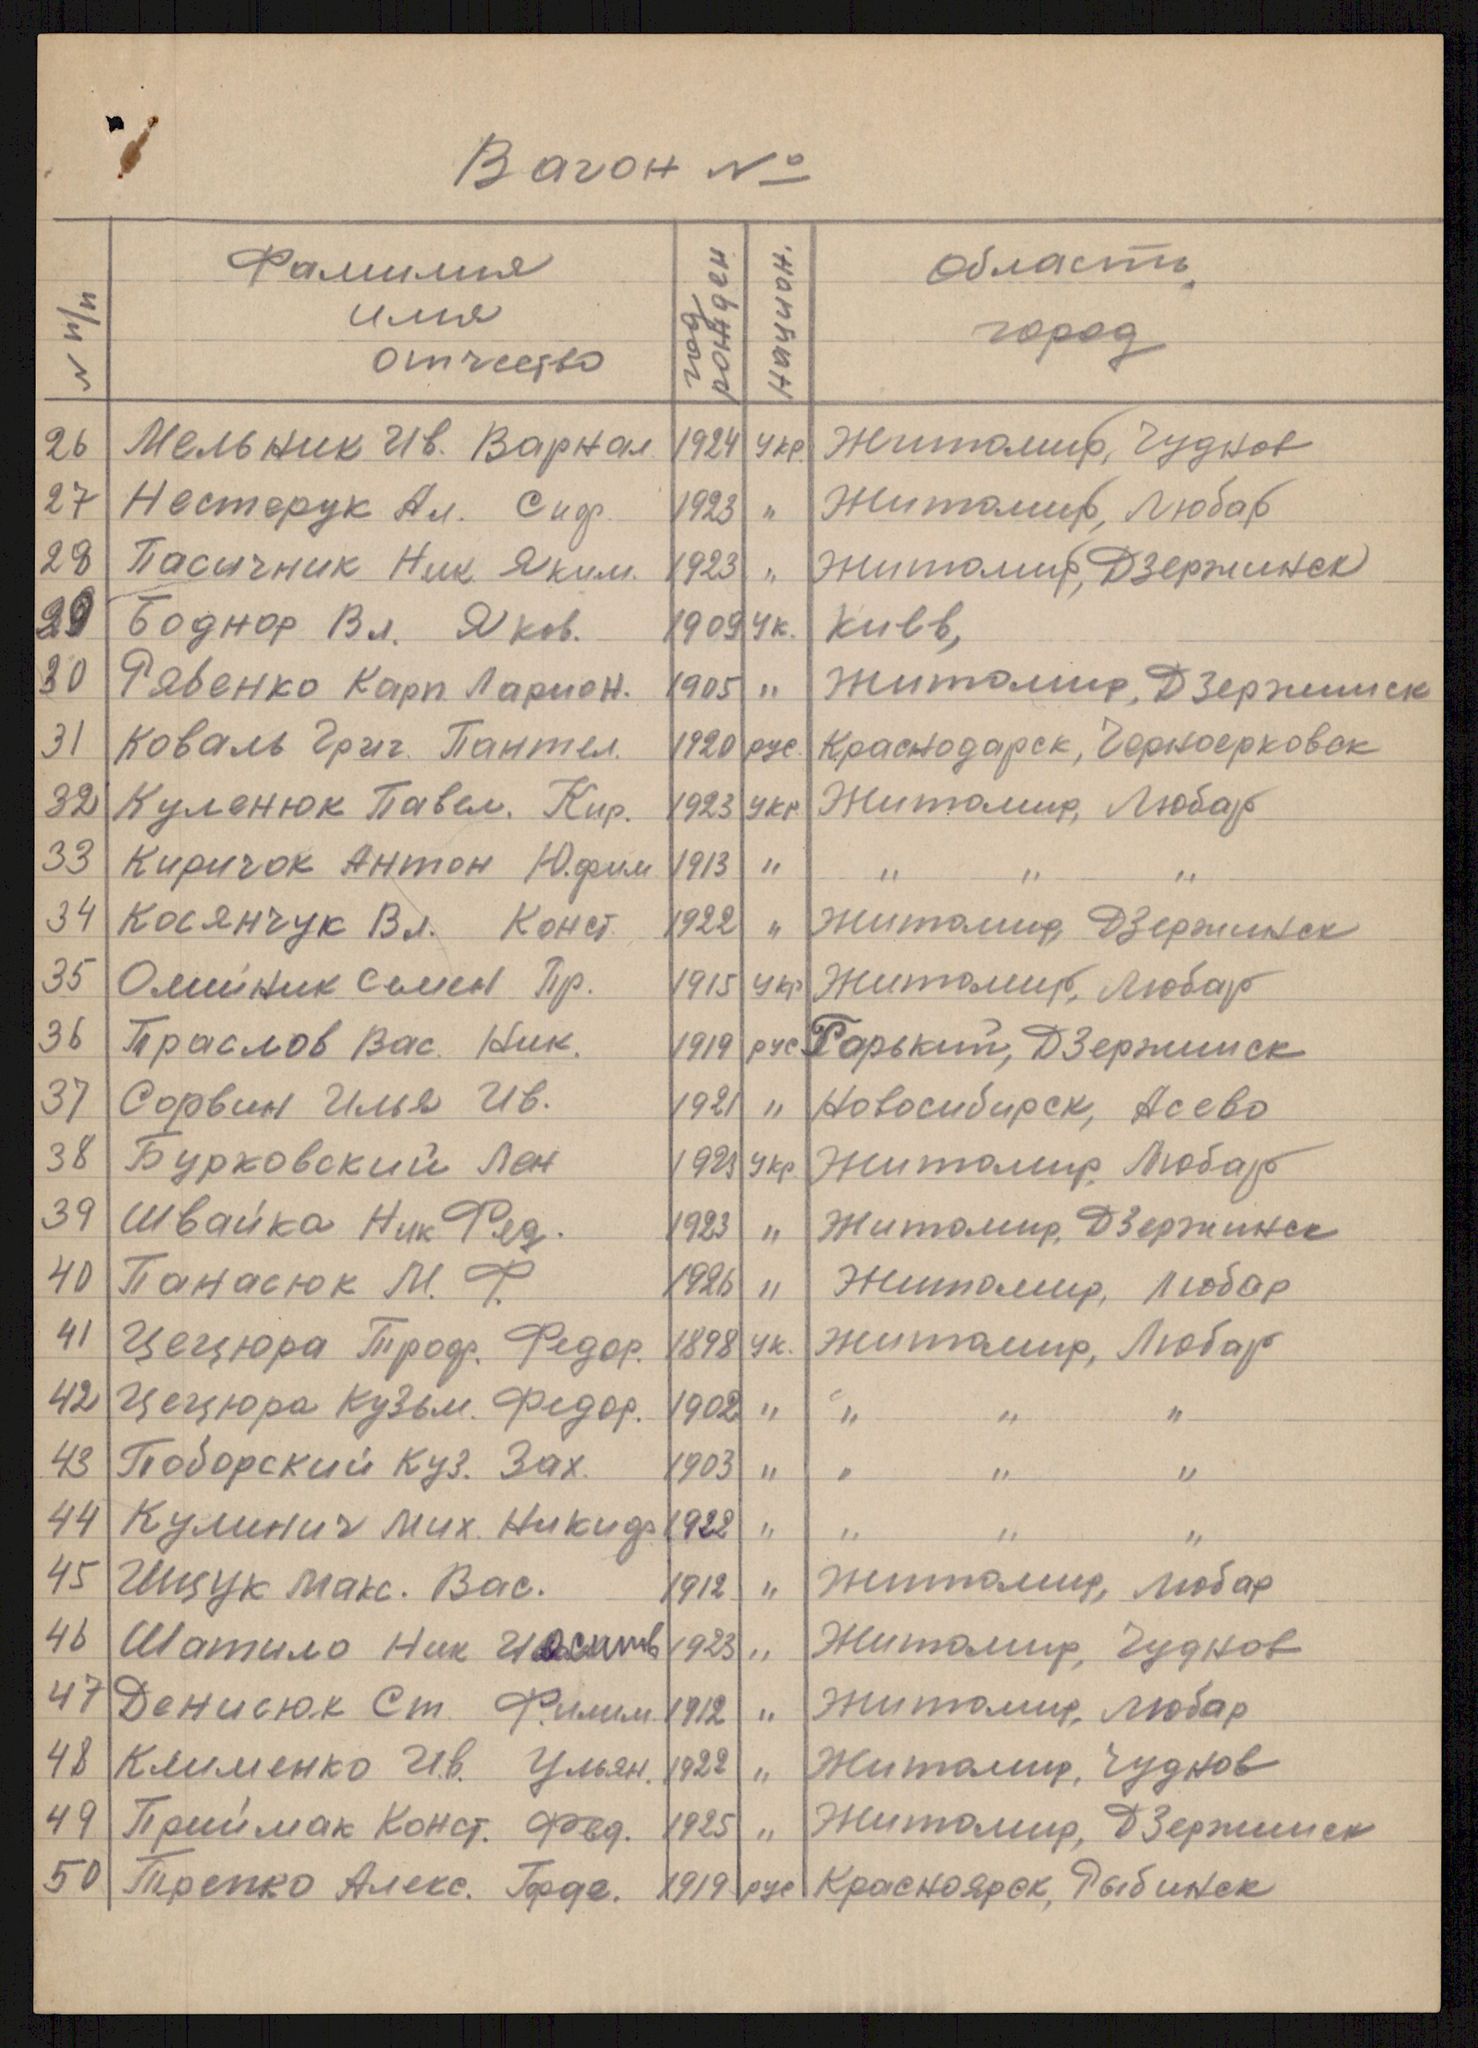 Вагон №
N п/п
Фамилия
имя
отчество
год рожден
национ.
область,
город
26 Мельник Ив. Варнал 1924 укр. Житомир, Чуднов
27 Нестерук Ал. Сид. 1923 " Житомир, Любар
28 Пасичник Ник Яким. 1923 " Житомир, Дзержинск
29 Боднор Вл. Яков. 1909 ук. Киев,
30 Рябенко Карп Ларион. 1905 " Житомир, Дзержинск
31 Коваль Григ. Пантел. 1920 рус. Краснодарск, Черноерковск
32 Куленюк Павел. Кир. 1923 укр Житомир, Любар
33 Киричок Антон Юфим 1913 " " " "
34 Косянчук Вл. Конст. 1922 " Житомир, Дзержинск
35 Олийник Семен Пр. 1915 укр Житомир, Любар
36 Праслов Вас. Ник. 1919 рус Горький, Дзержинск
37 Сорвин Илья Ив. 1921 " Новосибирск, Асево
38 Бурковский Лен 1923 укр Житомир, Любар
39 Швайка Ник Фед. 1923 " Житомир, Дзержинск
40 Панасюк М. Ф. 1926 " Житомир, Любар
41 Цецюра Троф. Федор. 1898 ук. Житомир, Любар
42 Цецюра Кузьм. Федор. 1902 " " " "
43 Поборский Куз. Зах. 1903 " " " "
44 Кулинич Мих. Никиф 1922 " " " "
45 Ищук Макс. Вас. 1912 " Житомир, Любар
46 Шатило Ник Иосипов 1923 " Житомир, Чуднов
47 Денисюк Ст. Филим. 1912 " Житомир, Любар
48 Клименко Ив. Ульян. 1922 " Житомир, Чуднов
49 Приймак Конст. Фед. 1925 " Житомир, Дзержинск
50 Трепко Алекс. 1919 рус Красноярск, Рыбинск